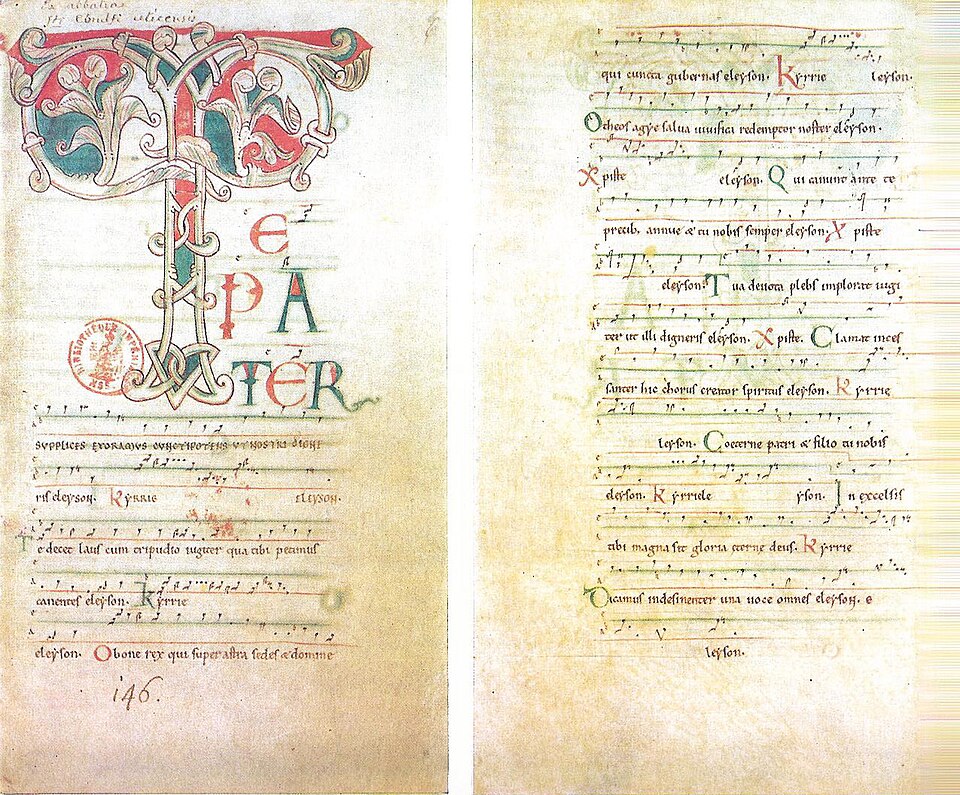 TE
PA
TER
SVPPLICES EXORAMVS CVNCTIPOTENS VT NOSTRI DIGNE
ris eleyson. Kyrrie eleyson.
Te decet laus cum tripudio iugiter qua tibi petimus
canentes eleyson. Kyrrie
eleyson. O bone rex qui super astra sedes & domine
146.
qui cuncta gubernas eleyson. Kyrrie leyson.
O theos agye salua uiuifica redemptor noster eleyson.
Xpiste eleyson. Qui canunt ante te
precib, annue & tu nobis semper eleyson. Xpiste
eleyson. Tua deuota plebs implorat iugi
ter ut illi digneris eleyson. Xpiste. Clamat inces
santer hic chorus creator spiritus eleyson. Kyrrie
leyson. Coeterne patri & filio tu nobis
eleyson. Kyrriele yson. In excelsis
tibi magna sit gloria eterne deus. Kyrrie
Dicamus indesinenter una uoce omnes eleyson. e
leyson.